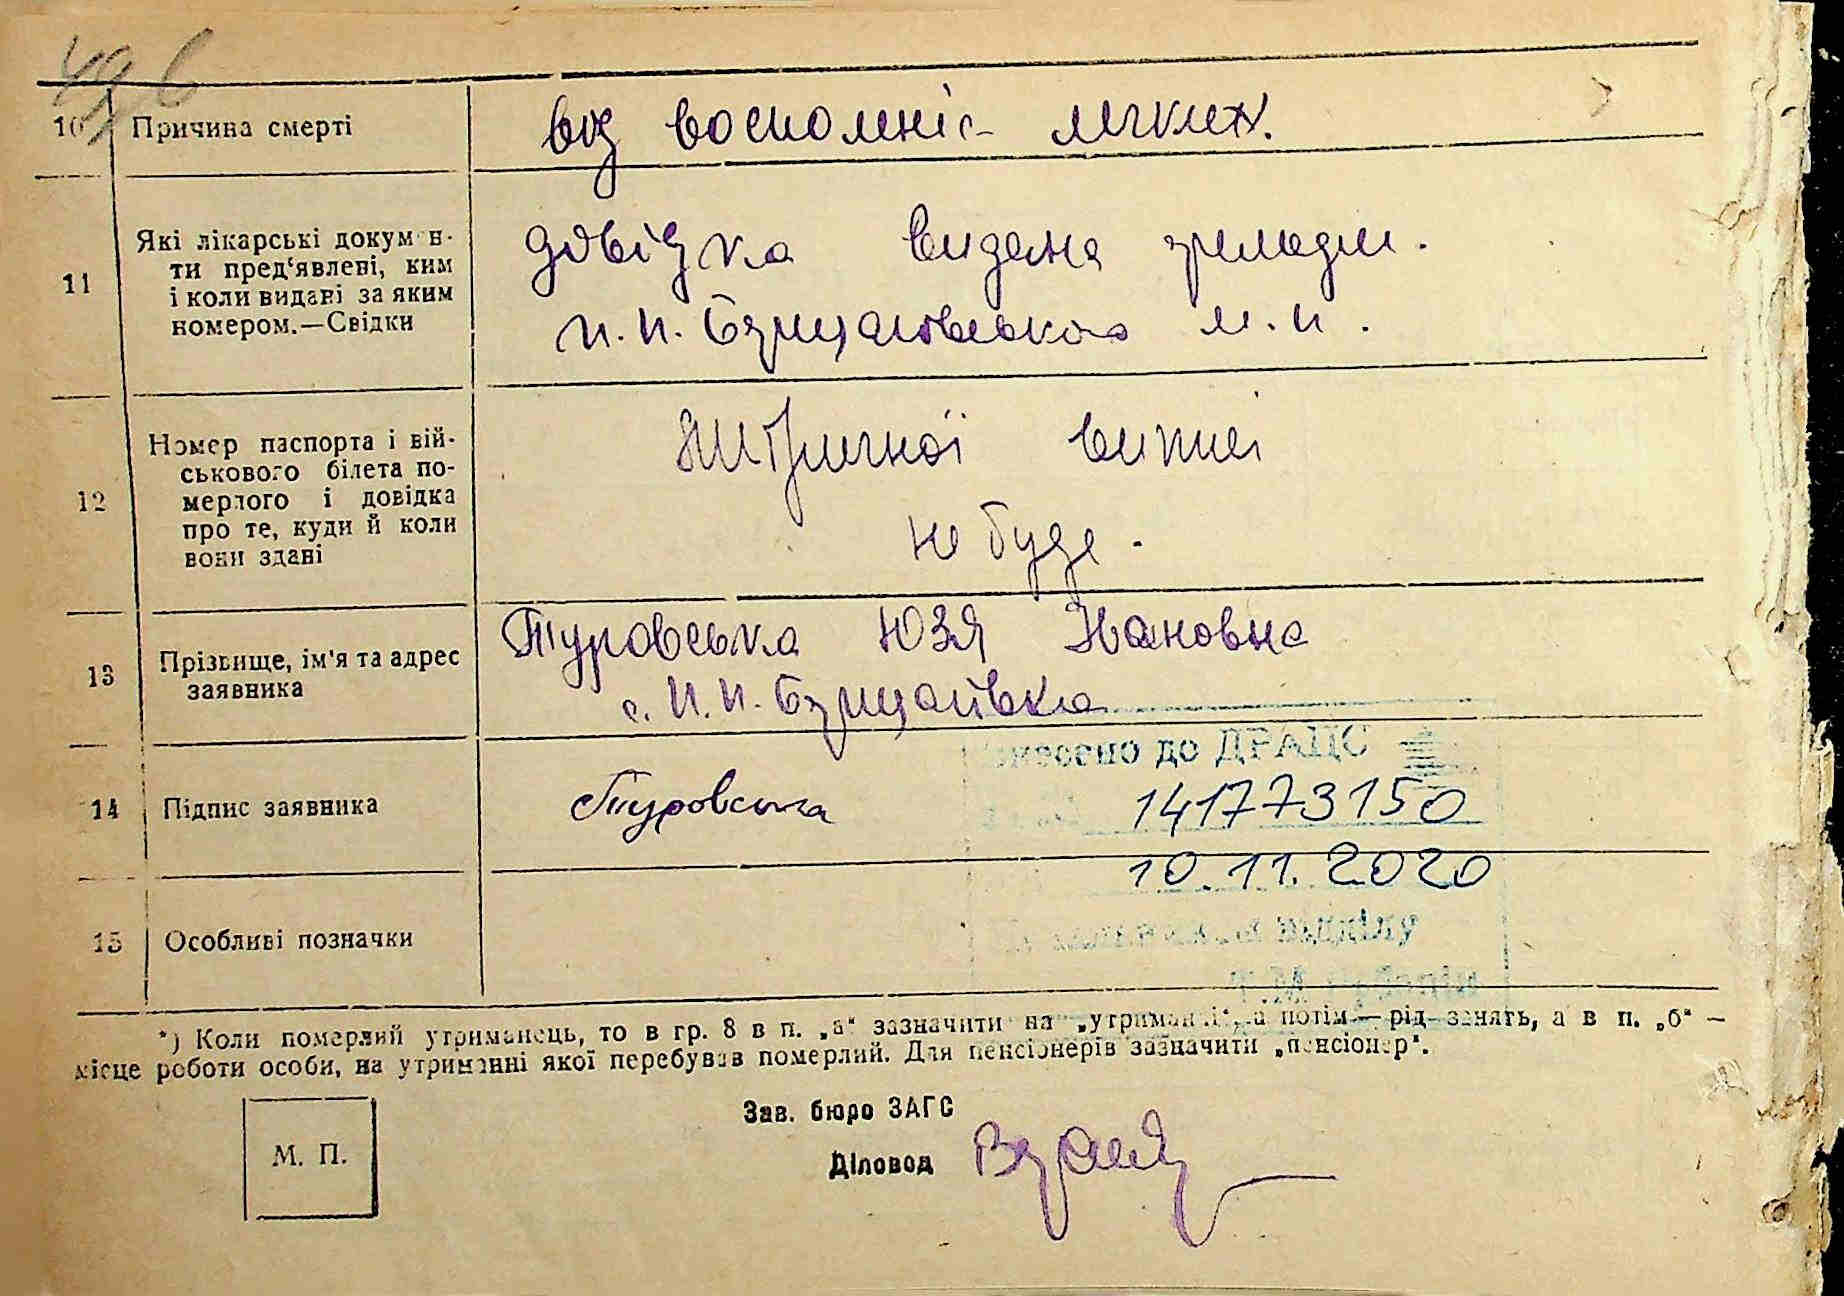 10 Причина смерті
від восполеніє легких.
11 Які лікарські докумен-
ти пред'явлені, ким
і коли видані за яким
номером.—Свідки
довідка видана громадян.
п.п. Бузицьког м.п.
12 Номер паспорта і вій-
ськового білета по-
мерлого і довідка
про те, куди й коли
вони здані
метричної випис
не буде.
13 Прізвище, ім'я та адрес
заявника
Туровська Юзя Ивановна
14 Підпис заявника
Туровська
внесено до ДРАЦС
141773150
10.11.2020
15 Особливі позначки
відділу
*) Коли померлий утриманець, то в гр. 8 в п. „а“ зазначити на „утриманні“, а потім — рід занять, а в п. „б“ —
місце роботи особи, на утриманні якої перебував померлий. Для пенсіонерів зазначити „пенсіонер“.
М. П.
Зав. бюро ЗАГС
Діловод